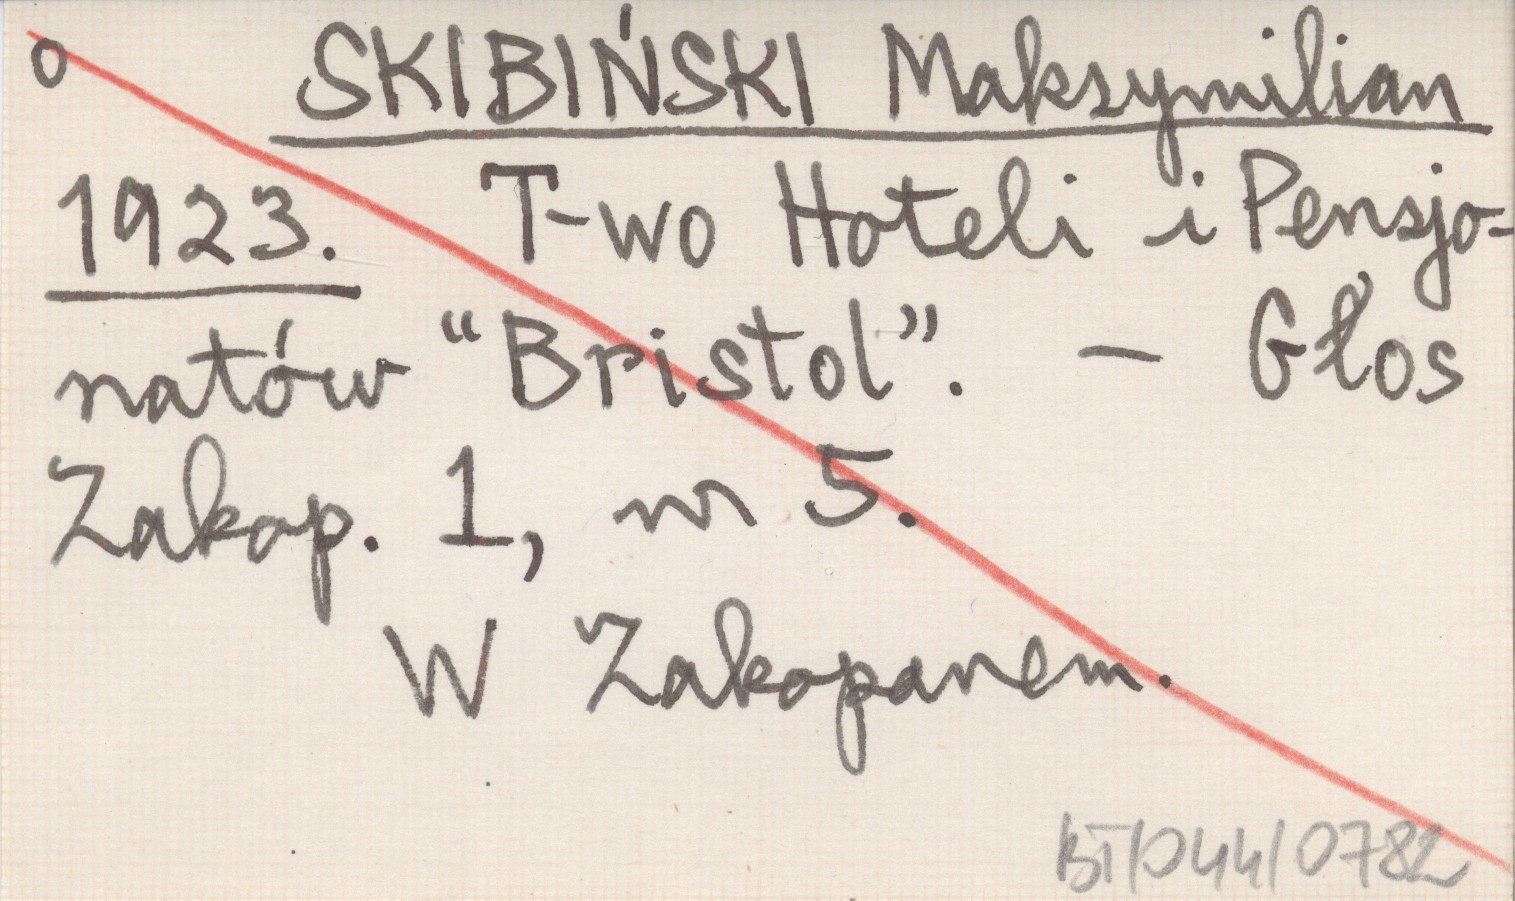 o SKIBIŃSKI Maksymilian
1923. T-wo Hoteli i Pensjo-
natów “Bristol”. — Głos
Zakop. 1, nr 5.
W Zakopanem.
BT/D44/0782